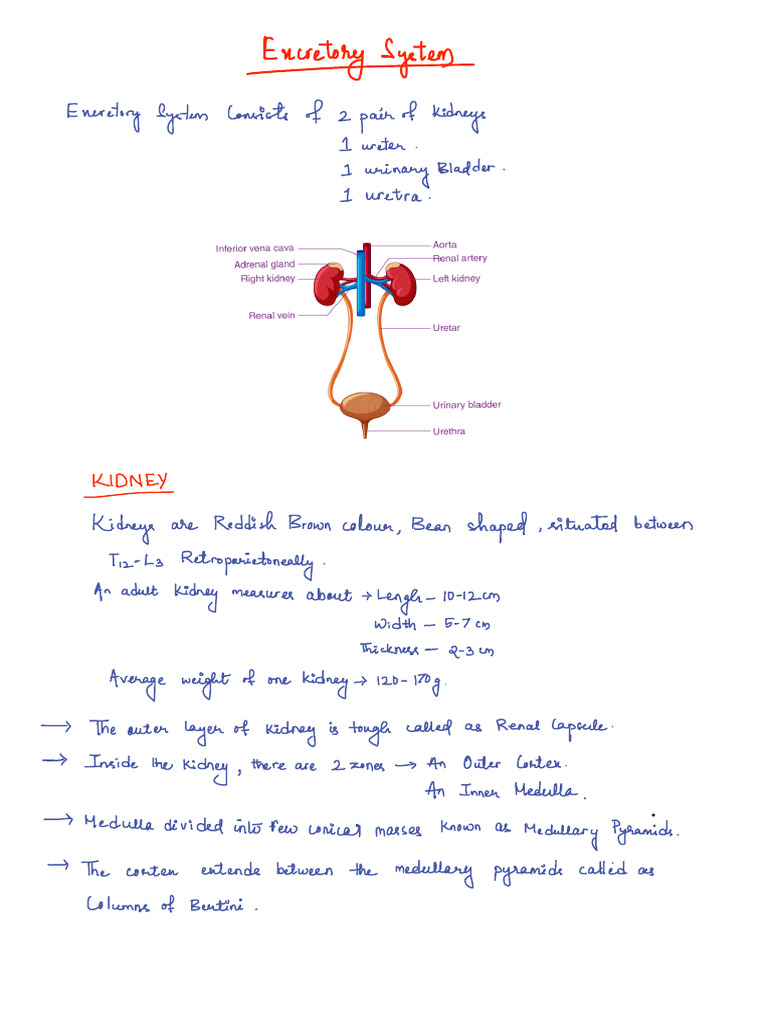 Excretory System
Excretory System Consists of 2 pair of Kidneys
1 ureter.
1 urinary Bladder.
1 uretra.
Inferior vena cava
Aorta
Adrenal gland
Renal artery
Right kidney
Left kidney
Renal vein
Uretar
Urinary bladder
Urethra
KIDNEY
Kidneys are Reddish Brown colour, Bean shaped, situated between
T12-L3 Retroparietoneally.
An adult Kidney measures about → Lengh - 10-12 cm
Width - 5-7 cm
Thickness - 2-3 cm
Average weight of one Kidney → 120-170g.
→ The outer layer of Kidney is tough called as Renal Capsule.
→ Inside the Kidney, there are 2 zones → An Outer Cortex.
An Inner Medulla.
→ Medulla divided into few conical masses known as Medullary Pyramids.
→ The cortex extends between the medullary pyramids called as
Columns of Bertini.